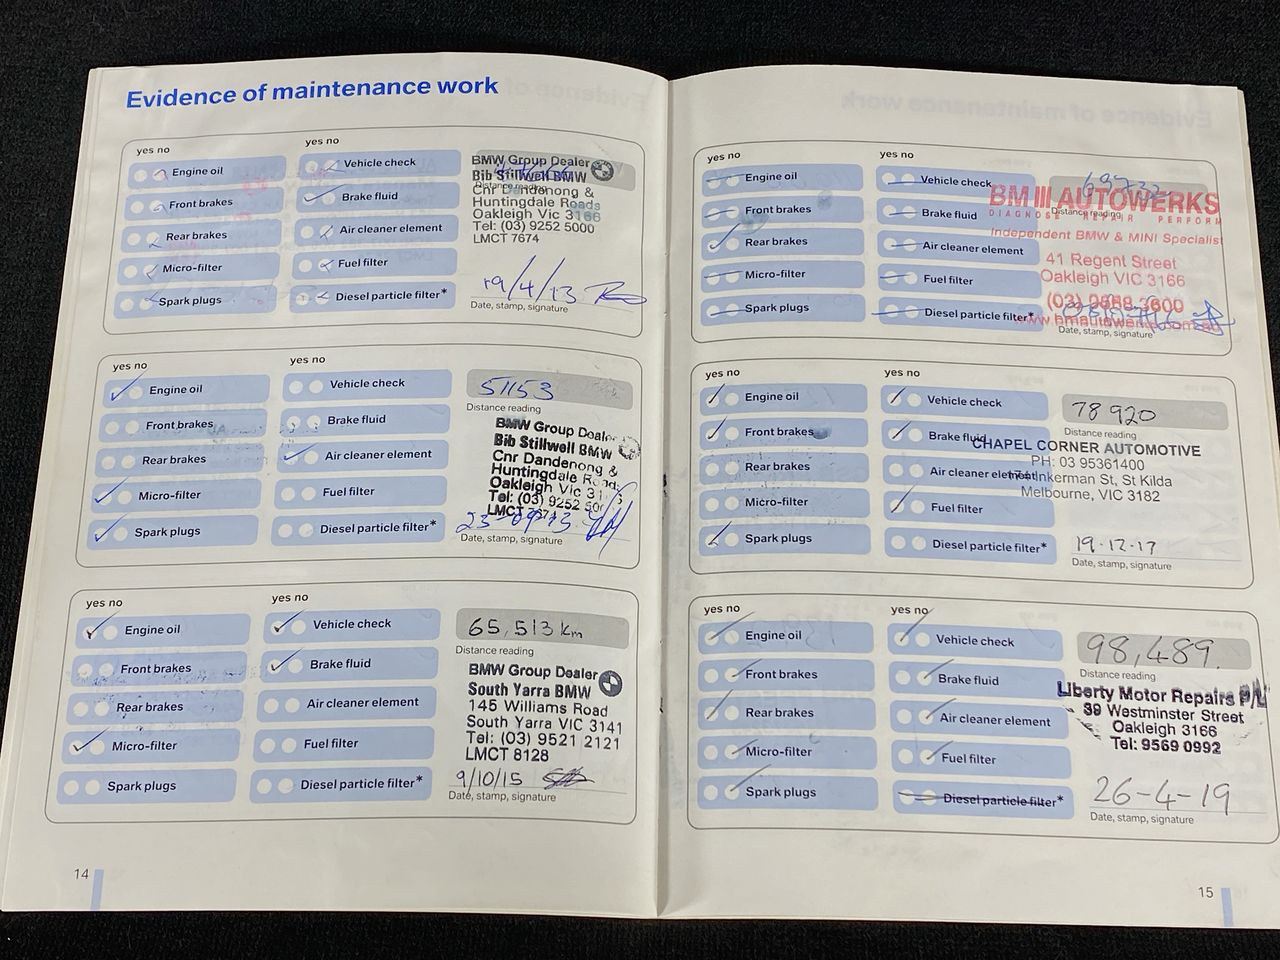 Evidence of maintenance work
yes no
yes no
Engine oil
Front brakes
Rear brakes
Micro-filter
Spark plugs
Vehicle check
Brake fluid
Air cleaner element
Fuel filter
Diesel particle filter*
BMW Group Dealer
Bib Stillwell BMW
Distance reading
Cnr Dandenong &
Huntingdale Roads
Oakleigh Vic 3166
Tel: (03) 9252 5000
LMCT 7674
19/4/13
Date, stamp, signature
yes no
yes no
Engine oil
Front brakes
Rear brakes
Micro-filter
Spark plugs
Vehicle check
Brake fluid
Air cleaner element
Fuel filter
Diesel particle filter*
51153
Distance reading
BMW Group Dealer
Bib Stillwell BMW
Cnr Dandenong &
Huntingdale Road
Oakleigh Vic 31
Tel: (03) 9252 500
LMCT 7674
Date, stamp, signature
yes no
yes no
Engine oil
Front brakes
Rear brakes
Micro-filter
Spark plugs
Vehicle check
Brake fluid
Air cleaner element
Fuel filter
Diesel particle filter*
65,513 km
Distance reading
BMW Group Dealer
South Yarra BMW
145 Williams Road
South Yarra VIC 3141
Tel: (03) 9521 2121
LMCT 8128
9/10/15
Date, stamp, signature
14
yes no
yes no
Engine oil
Front brakes
Rear brakes
Micro-filter
Spark plugs
Vehicle check
Brake fluid
Air cleaner element
Fuel filter
Diesel particle filter*
BM III AUTOWERKS
Distance reading
DIAGNOSE REPAIR PERFORM
Independent BMW & MINI Specialist
41 Regent Street
Oakleigh VIC 3166
(03) 9568 3600
www.bmautowerks.com.au
Date, stamp, signature
yes no
yes no
Engine oil
Front brakes
Rear brakes
Micro-filter
Spark plugs
Vehicle check
Brake fluid
Air cleaner element
Fuel filter
Diesel particle filter*
78920
Distance reading
CHAPEL CORNER AUTOMOTIVE
PH: 03 95361400
Inkerman St, St Kilda
Melbourne, VIC 3182
19-12-17
Date, stamp, signature
yes no
yes no
Engine oil
Front brakes
Rear brakes
Micro-filter
Spark plugs
Vehicle check
Brake fluid
Air cleaner element
Fuel filter
Diesel particle filter*
98,489.
Distance reading
Liberty Motor Repairs P/L
39 Westminster Street
Oakleigh 3166
Tel: 9569 0992
26-4-19
Date, stamp, signature
15